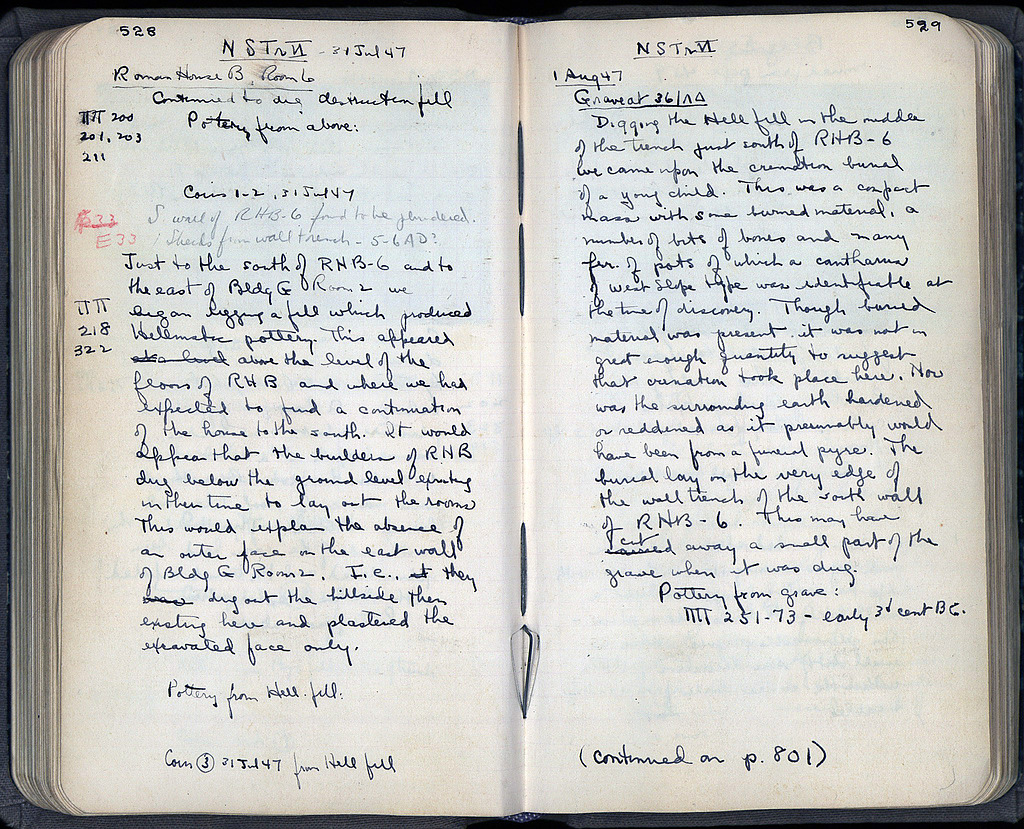 528
NSTr VI - 31 Jul 47
Roman House B, Room 6
Continued to dig destruction fill
ΠΠ 200
201, 203
211
Pottery from above:
Coins 1-2, 31 Jul 47
S. wall of RHB-6 found to be plundered.
Sherds from wall trench - 5-6 AD?
E 33
E 33
Just to the south of RHB-6 and to
the east of Bldg G Room 2 we
began digging a fill which produced
ΠΠ
218
322
Hellenistic pottery. This appeared
at a level above the level of the
floors of RHB and where we had
expected to find a continuation
of the house to the south. It would
appear that the builders of RHB
dug below the ground level existing
in their time to lay out the rooms
This would explain the absence of
an outer face on the east wall
of Bldg G Room 2. I.e., they
dug out the hillside then
existing here and plastered the
excavated face only.
Pottery from Hell. fill:
Coin 3 31 Jul 47 from Hell fill
529
NSTr VI
1 Aug 47
Grave at 36/ΛΔ
Digging the Hell fill in the middle
of the trench just south of RHB-6
we came upon the cremation burial
of a young child. This was a compact
mass with some burned material, a
number of bits of bones and many
fr. of pots of which a cantharus
of West Slope type was identifiable at
the time of discovery. Though burned
material was present it was not in
great enough quantity to suggest
that cremation took place here. Nor
was the surrounding earth hardened
or reddened as it presumably would
have been from a funeral pyre. The
burial lay on the very edge of
the wall trench of the south wall
of RHB-6. This may have
cut away a small part of the
grave when it was dug.
Pottery from grave:
ΠΠ 251-73 - early 3d cent BC.
(continued on p. 801)